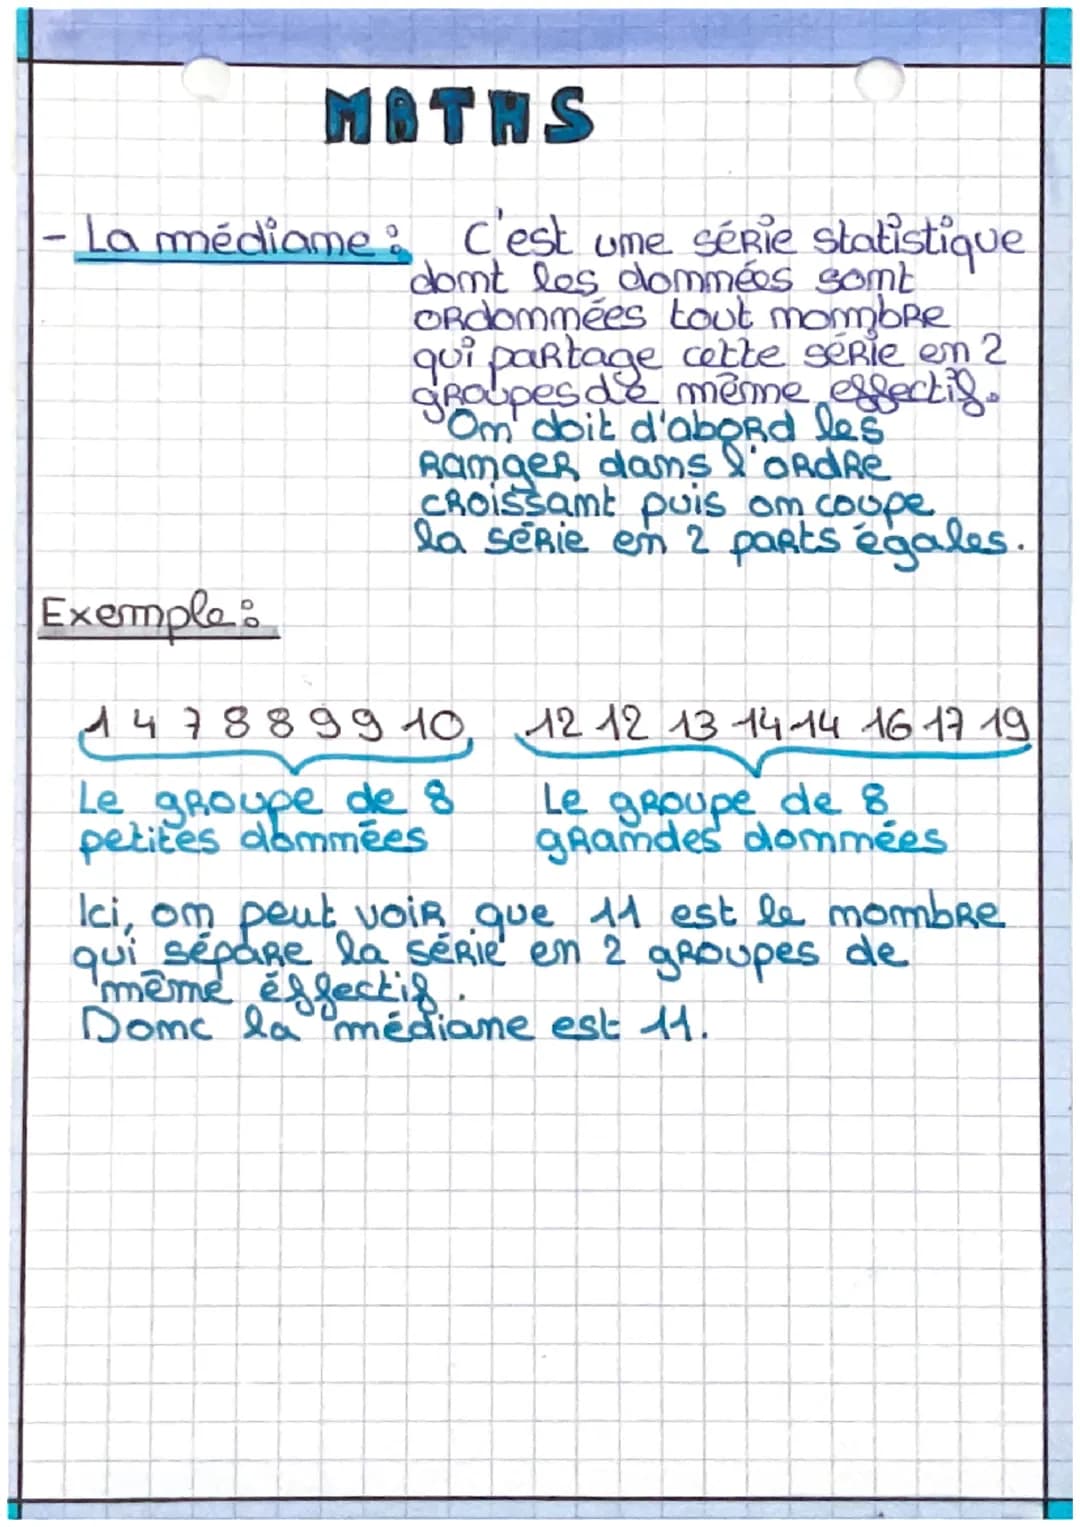 MATHS
- La médiane : C'est une série statistique
dont les données sont
ordonnées tout nombre
qui partage cette série en 2
groupes de même effectif.
On doit d'abord les
ranger dans l'ordre
croissant puis on coupe
la série en 2 parts égales.
Exemple :
1 4 7 8 8 9 9 10 12 12 13 14 14 16 17 19
Le groupe de 8 petites données
Le groupe de 8 grandes données
Ici, on peut voir que 11 est le nombre
qui sépare la série en 2 groupes de
même éffectif.
Donc la médiane est 11.